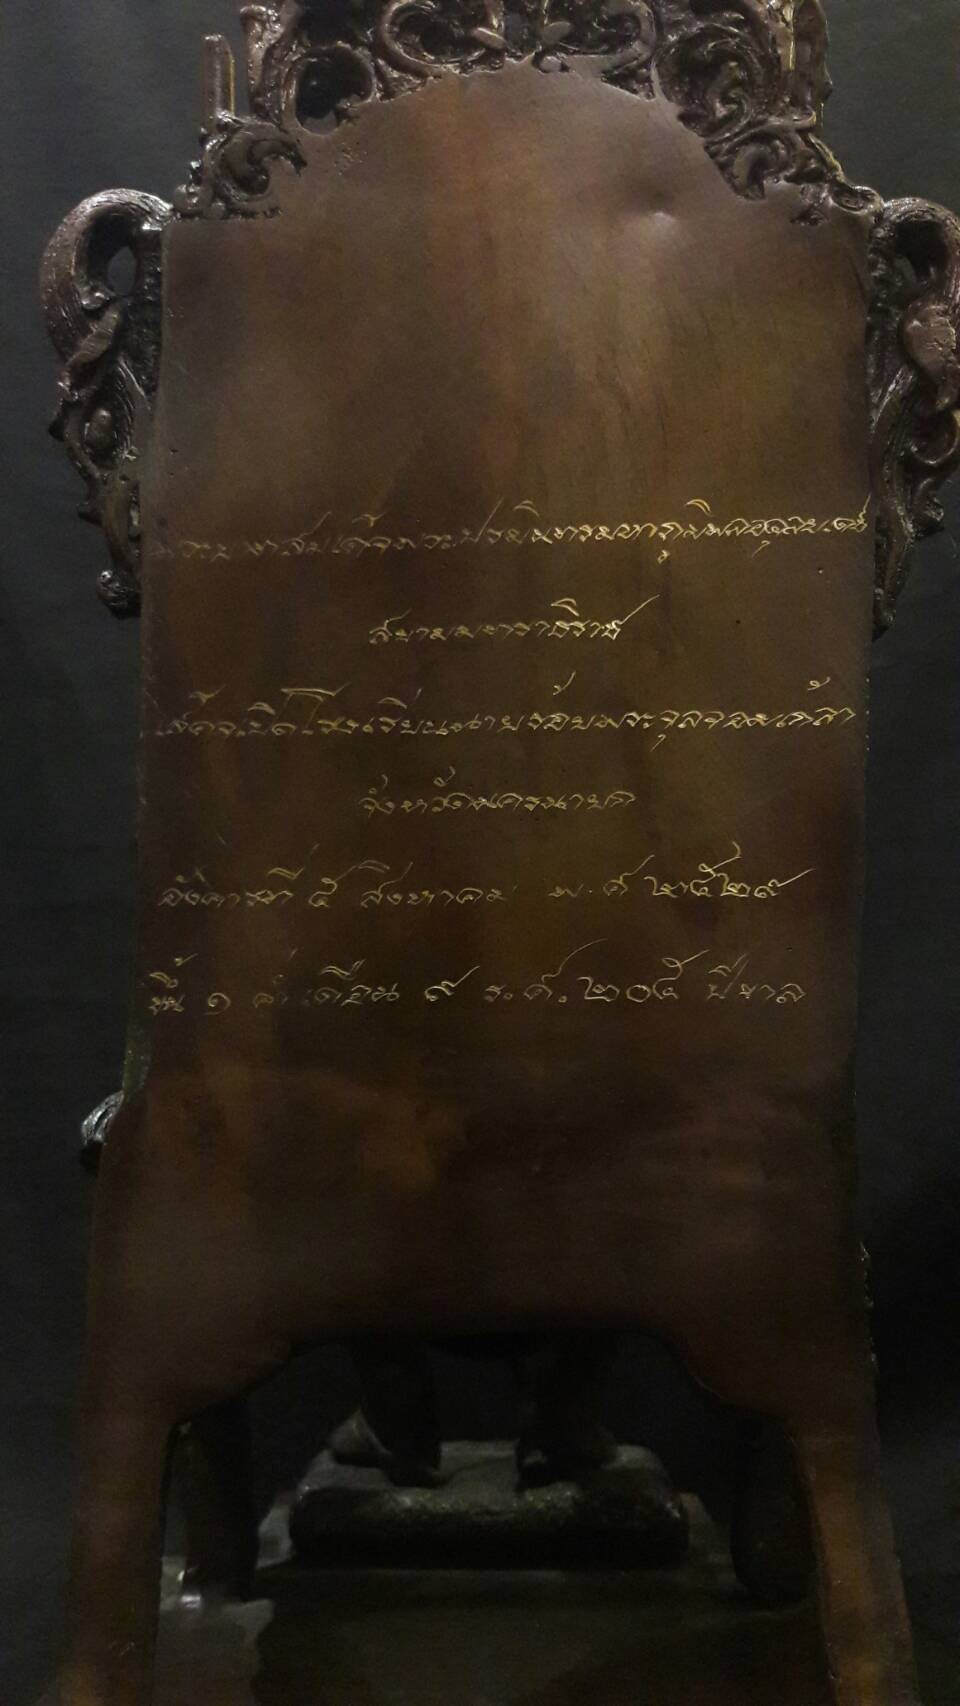 พระบาทสมเด็จพระปรมินทรมหาภูมิพลอดุลยเดช
สยามมหาราชาธิราช
เสด็จเปิดโรงเรียนนายร้อยพระจุลจอมเกล้า
จังหวัดนครนายก
อังคารที่ ๕ สิงหาคม พ.ศ ๒๕๒๙
ขึ้น ๑ ค่ำ เดือน ๙ ร.ศ. ๒๐๕ ปีขาล